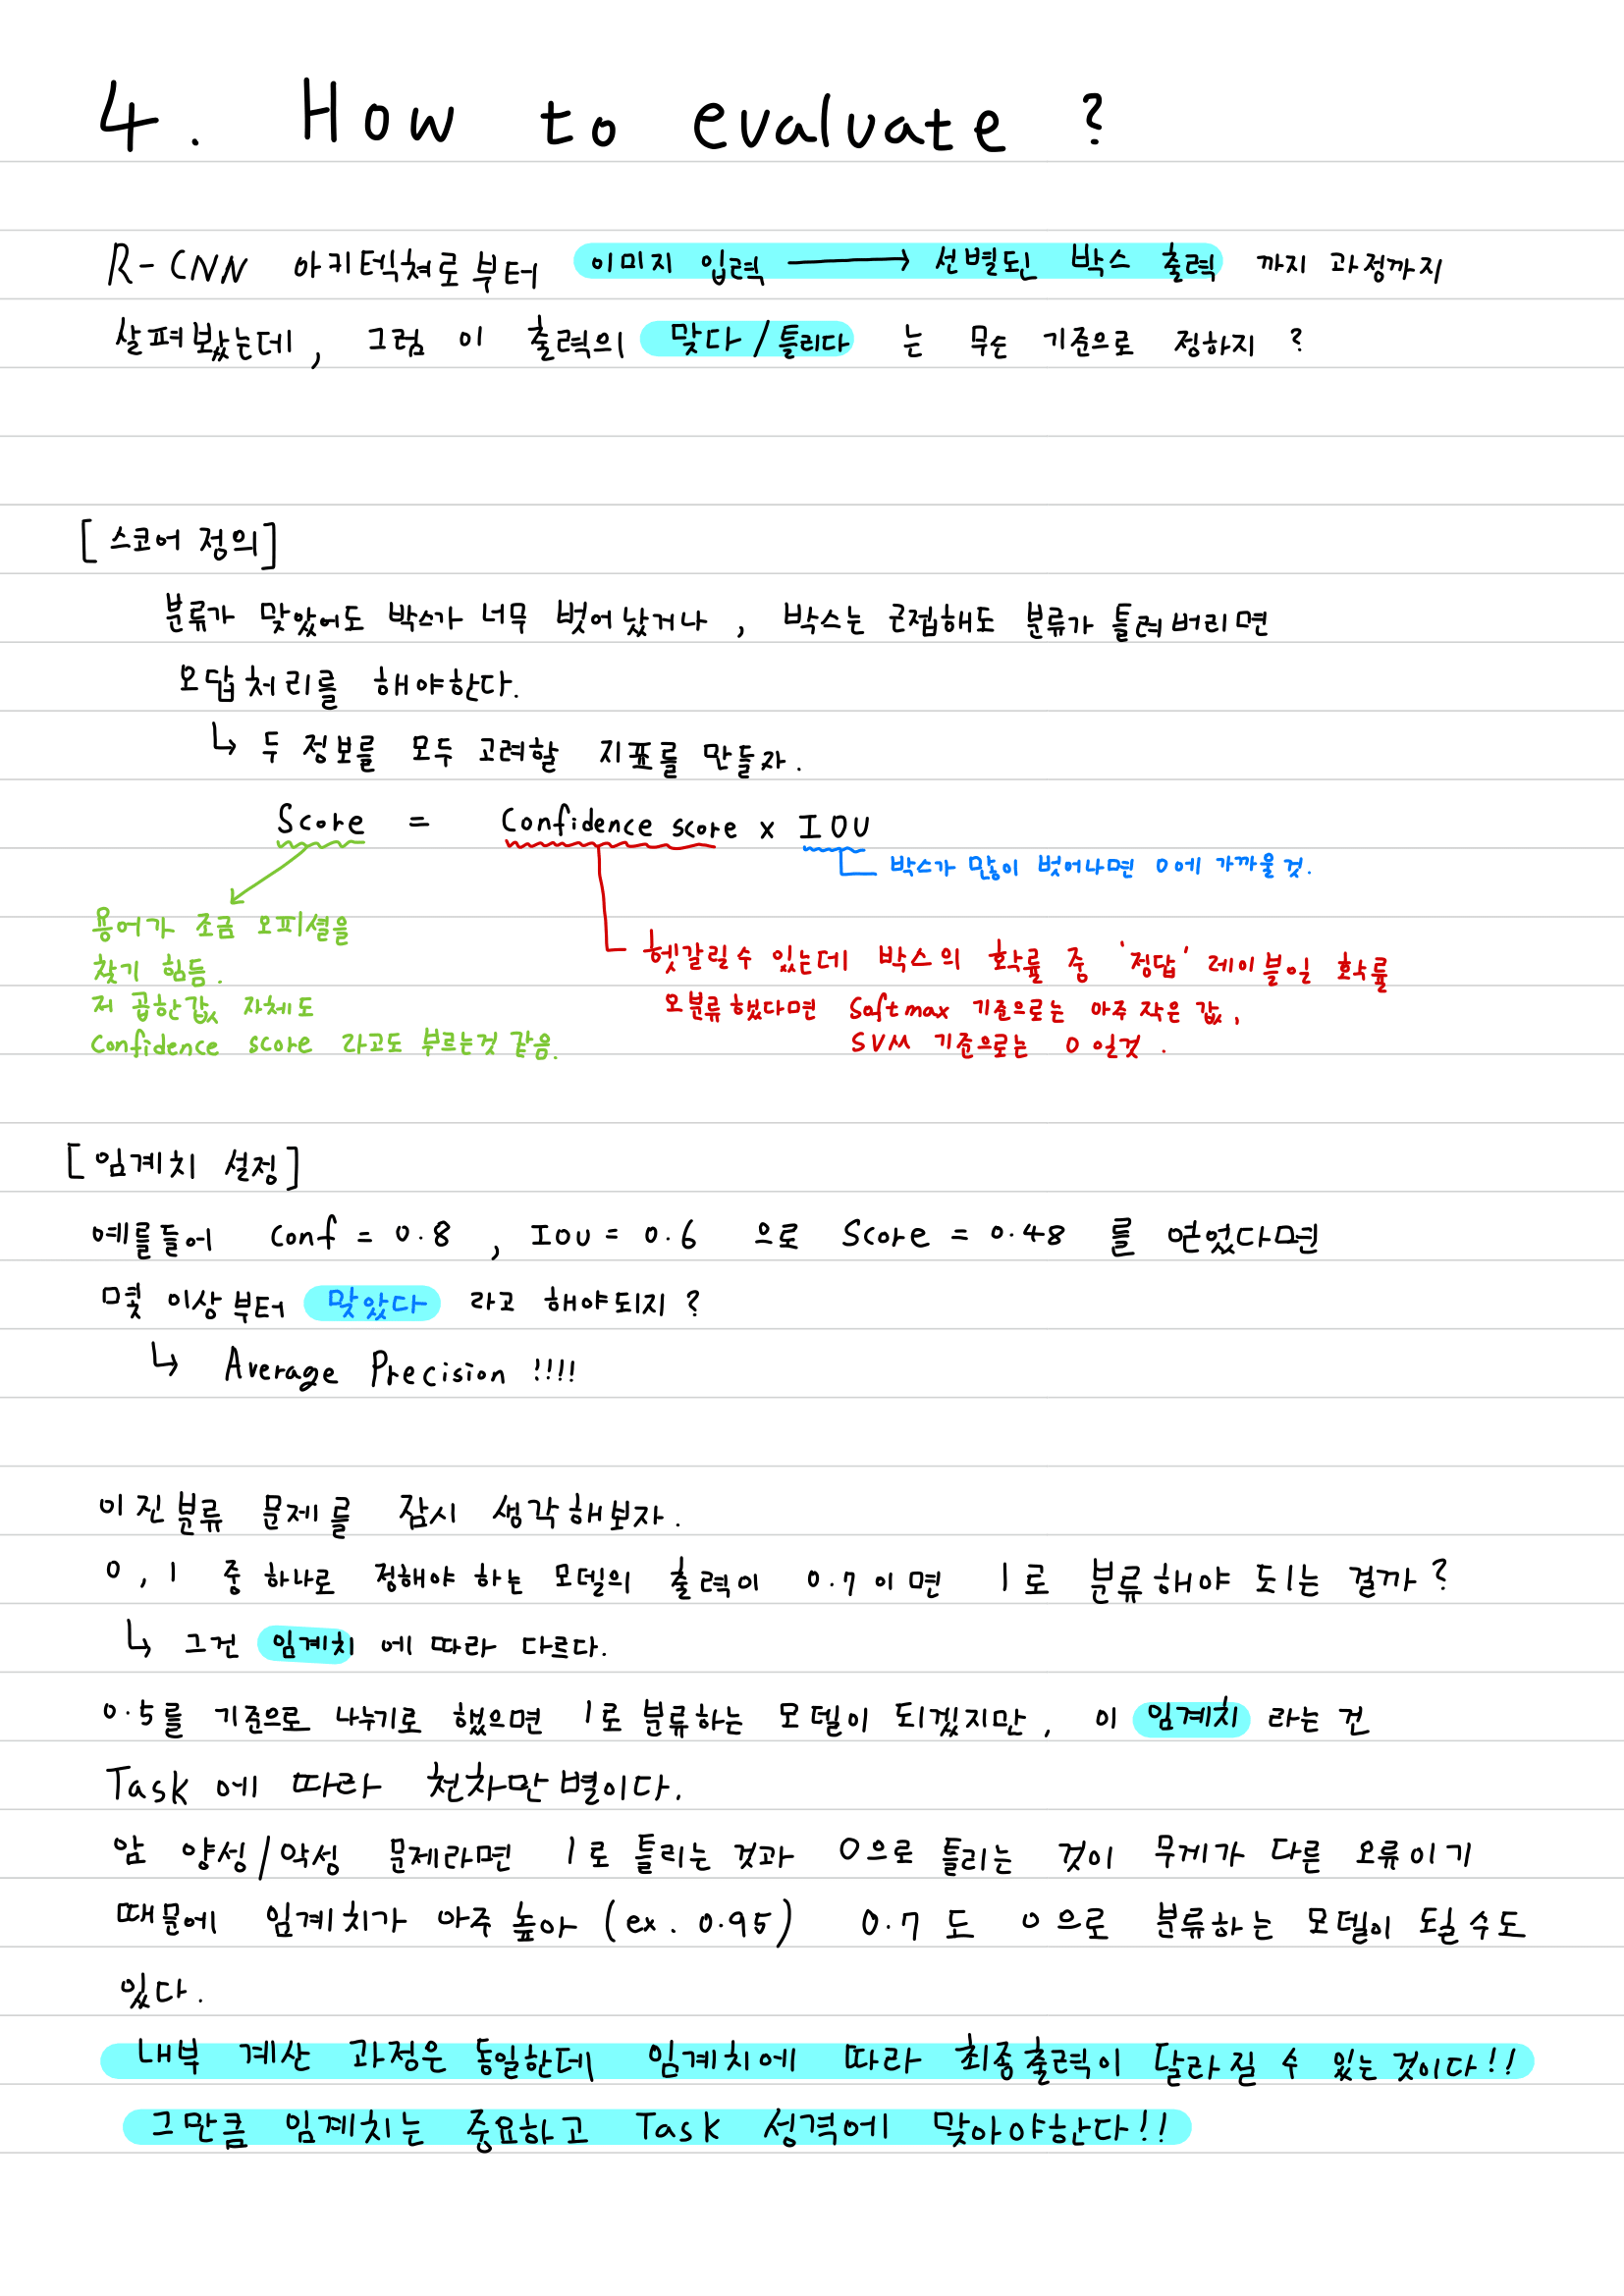 4. How to evaluate ?
R-CNN 아키텍쳐로부터 이미지 입력 → 선별된 박스 출력 까지 과정까지
살펴봤는데, 그럼 이 출력의 맞다/틀리다 는 무슨 기준으로 정하지 ?
[스코어 정의]
분류가 맞았어도 박스가 너무 벗어났거나, 박스는 근접해도 분류가 틀려버리면
오답처리를 해야한다.
↳ 두 정보를 모두 고려할 지표를 만들자.
Score = Confidence score x IOU
박스가 많이 벗어나면 0에 가까울것.
용어가 조금 오피셜을
찾기 힘듬.
저 곱한값 자체도
Confidence score 라고도 부르는것 같음.
헷갈릴수 있는데 박스의 확률 중 '정답' 레이블일 확률
오분류했다면 Softmax 기준으로는 아주 작은 값,
SVM 기준으로는 0 일것.
[임계치 설정]
예를들어 Conf = 0.8 , IOU = 0.6 으로 Score = 0.48 를 얻었다면
몇 이상부터 맞았다 라고 해야되지 ?
↳ Average Precision !!!!
이진분류 문제를 잠시 생각해보자.
0, 1 중 하나로 정해야 하는 모델의 출력이 0.7이면 1로 분류해야 되는 걸까?
↳ 그건 임계치에 따라 다르다.
0.5를 기준으로 나누기로 했으면 1로 분류하는 모델이 되겠지만, 이 임계치 라는 건
Task에 따라 천차만별이다.
암 양성/악성 문제라면 1로 틀리는 것과 0으로 틀리는 것이 무게가 다른 오류이기
때문에 임계치가 아주 높아 (ex. 0.95) 0.7도 0으로 분류하는 모델이 될수도
있다.
내부 계산 과정은 동일한데 임계치에 따라 최종출력이 달라질 수 있는 것이다!!
그만큼 임계치는 중요하고 Task 성격에 맞아야한다!!